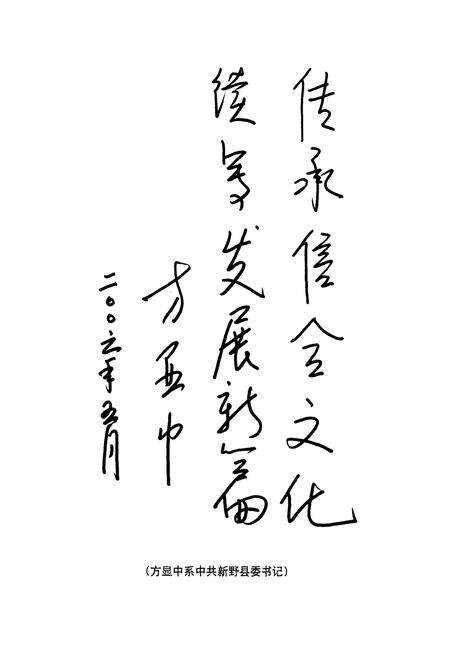 传承信合文化
续写发展新篇
方显中
二〇〇六年五月
（方显中系中共新野县委书记）